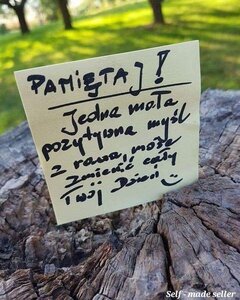 PAMIĘTAJ!
Jedna mała
pozytywna myśl
z rana, może
zmienić cały
Twój Dzień
Self-made seller